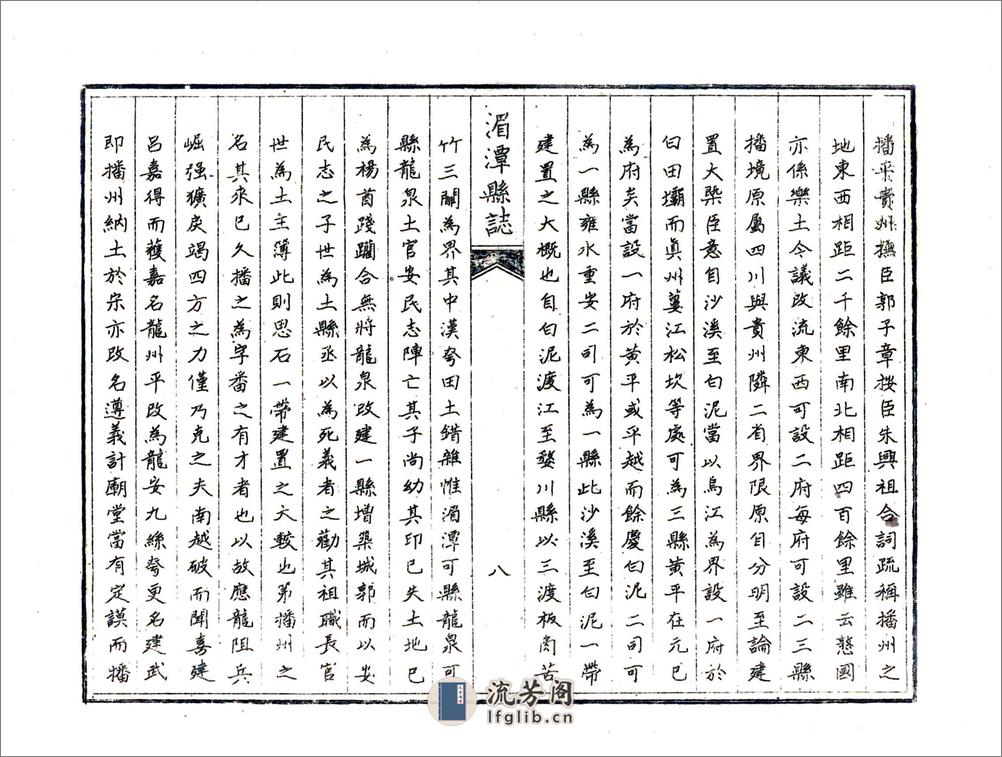 播平貴州撫臣郭子章按臣朱興祖合詞疏稱播州之
地東西相距二千餘里南北相距四百餘里雖云憨國
亦係樂土令議改流東西可設二府每府可設二三縣
播境原屬四川與貴州隣二省界限原自分明至論建
置大槩臣意自沙溪至白泥當以烏江為界設一府於
白田壩而真州蔞江松坎等處可為三縣黃平在元已
為府矣當設一府於黃平或平越而餘慶白泥二司可
為一縣雍水重安二司可為一縣此沙溪至白泥一帶
建置之大概也自白泥渡江至婺川縣以三渡板角苦
湄潭縣誌
八
竹三關為界其中漢夸田土錯雜惟湄潭可縣龍泉可
縣龍泉土官安民志陣亡其子尚幼其印已失土地已
為楊酋踐躪合無將龍泉改建一縣增築城郭而以安
民志之子世為土縣丞以為死義者之勸其祖職長官
世為土主簿此則思石一帶建置之大較也第播州之
名其來已久播之為字番之有才者也以故應龍阻兵
崛强獷戾竭四方之力僅乃克之夫南越破而聞喜建
呂嘉得而獲嘉名龍州平改為龍安九絲夸更名建武
即播州納土於宗亦改名遵義計廟堂當有定謨而播
流芳阁
lfglib.cn